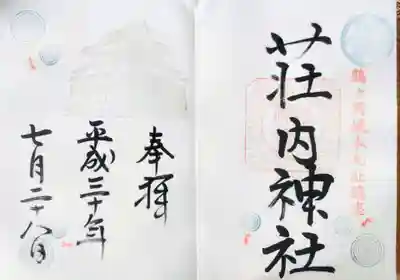 荘内神社
奉拝
平成三十年
七月二十八日